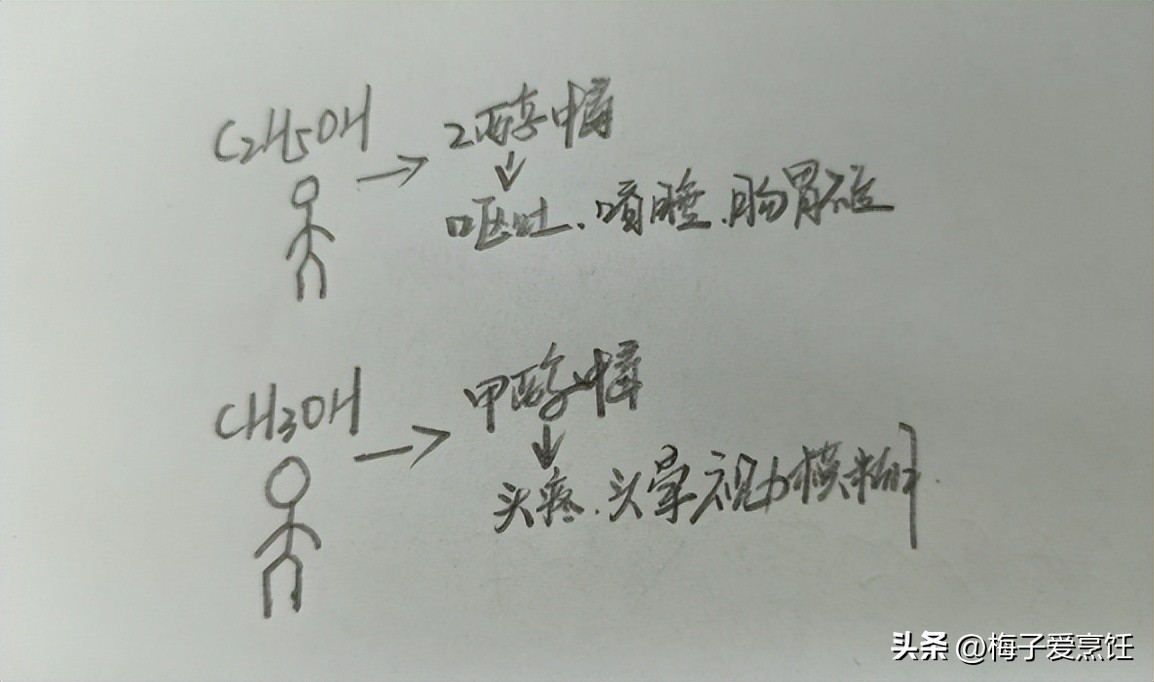 C2H5OH → 2醇中毒
↓
呕吐、嗜睡、肠胃不适
CH3OH → 甲醇中毒
↓
头疼、头晕、视力模糊
头条 @梅子爱烹饪